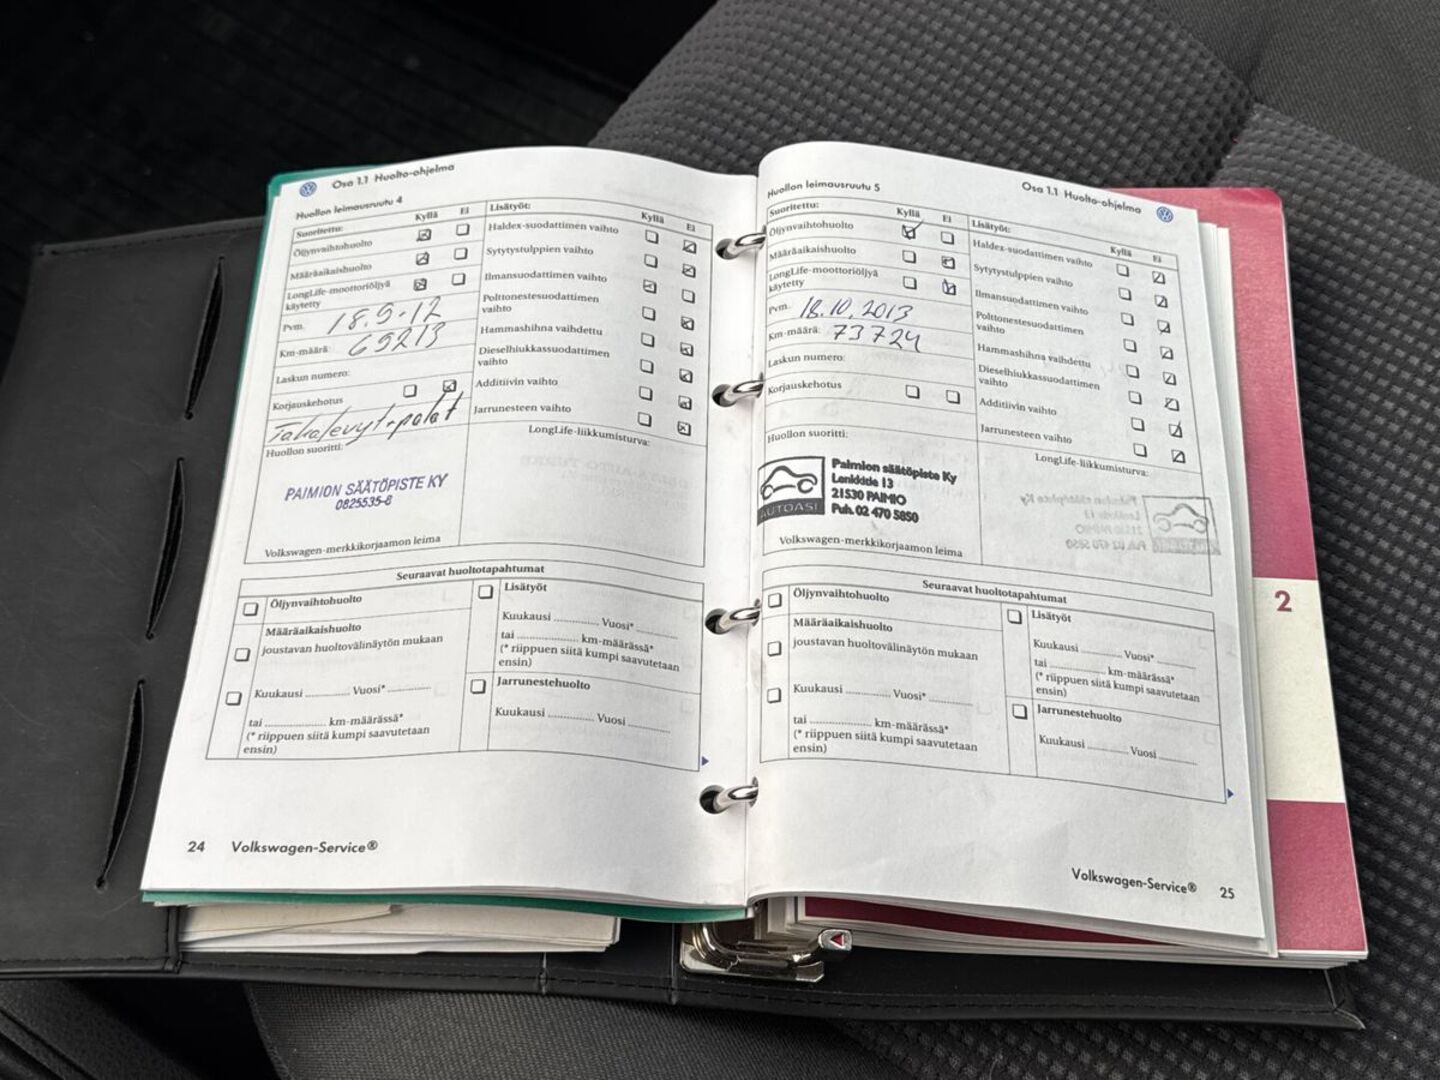 Osa 1.1 Huolto-ohjelma
Huollon leimausruutu 4
Suoritettu: Kyllä Ei
Öljynvaihtohuolto
Määräaikaishuolto
LongLife-moottoriöljyä
käytetty
Pvm. 18.9-12
Km-määrä: 69213
Laskun numero:
Korjauskehotus
Takalevyt+palat
Huollon suoritti:
PAIMION SÄÄTÖPISTE KY
0825535-8
Volkswagen-merkkikorjaamon leima
Lisätyöt: Kyllä Ei
Haldex-suodattimen vaihto
Sytytystulppien vaihto
Ilmansuodattimen vaihto
Polttonestesuodattimen
vaihto
Hammashihna vaihdettu
Dieselhiukkassuodattimen
vaihto
Additiivin vaihto
Jarrunesteen vaihto
LongLife-liikkumisturva:
Seuraavat huoltotapahtumat
Öljynvaihtohuolto
Määräaikaishuolto
joustavan huoltovälinäytön mukaan
Kuukausi ............ Vuosi* ............
tai ................ km-määrässä*
(* riippuen siitä kumpi saavutetaan
ensin)
Lisätyöt
Kuukausi ............ Vuosi* ............
tai ................ km-määrässä*
(* riippuen siitä kumpi saavutetaan
ensin)
Jarrunestehuolto
Kuukausi ............ Vuosi ............
24 Volkswagen-Service®
Osa 1.1 Huolto-ohjelma
Huollon leimausruutu 5
Suoritettu: Kyllä Ei
Öljynvaihtohuolto
Määräaikaishuolto
LongLife-moottoriöljyä
käytetty
Pvm. 18.10.2013
Km-määrä: 73724
Laskun numero:
Korjauskehotus
Huollon suoritti:
AUTOASI
Paimion säätöpiste Ky
Lenkkitie 13
21530 PAIMIO
Puh. 02 470 5850
Volkswagen-merkkikorjaamon leima
Lisätyöt: Kyllä Ei
Haldex-suodattimen vaihto
Sytytystulppien vaihto
Ilmansuodattimen vaihto
Polttonestesuodattimen
vaihto
Hammashihna vaihdettu
Dieselhiukkassuodattimen
vaihto
Additiivin vaihto
Jarrunesteen vaihto
LongLife-liikkumisturva:
Seuraavat huoltotapahtumat
Öljynvaihtohuolto
Määräaikaishuolto
joustavan huoltovälinäytön mukaan
Kuukausi ............ Vuosi* ............
tai ................ km-määrässä*
(* riippuen siitä kumpi saavutetaan
ensin)
Lisätyöt
Kuukausi ............ Vuosi* ............
tai ................ km-määrässä*
(* riippuen siitä kumpi saavutetaan
ensin)
Jarrunestehuolto
Kuukausi ............ Vuosi ............
Volkswagen-Service® 25
2